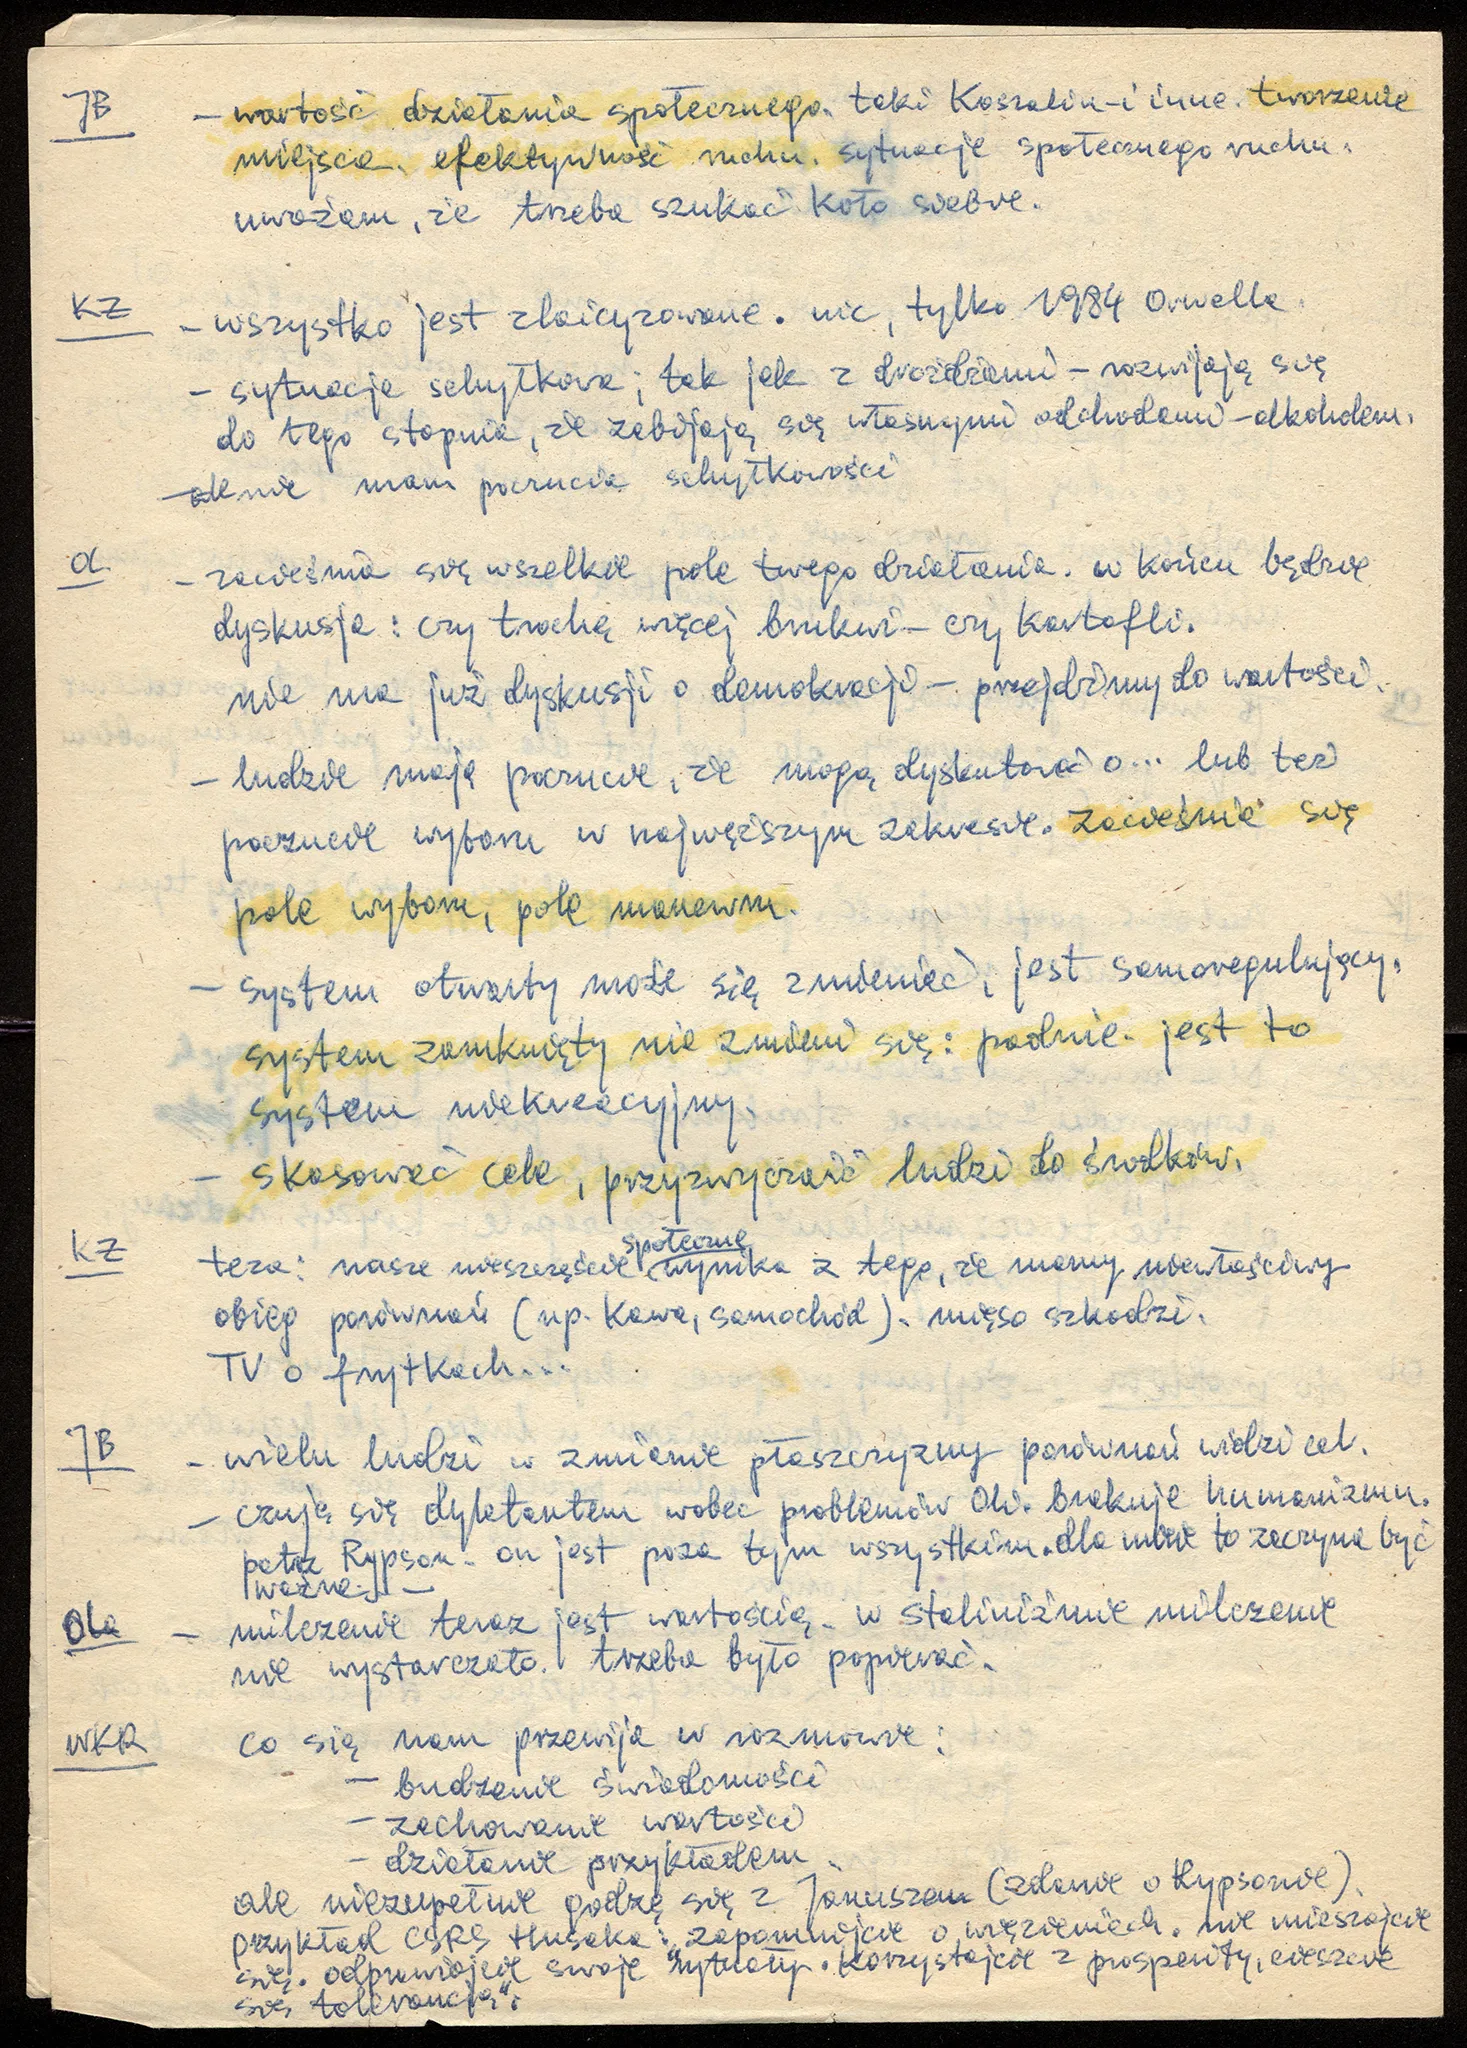 JB - wartość działania społecznego. taki Koszalin - i inne. tworzenie
miejsca. efektywność ruchu. sytuacje społecznego ruchu.
uważam, że trzeba szukać koło siebie.
KZ - wszystko jest zlaicyzowane. nic, tylko 1984 Orwella.
- sytuacja schyłkowa; tak jak z drożdżami - rozwijają się
do tego stopnia, że zabijają się własnymi odchodami - alkoholem.
- ale nie mam poczucia schyłkowości
O. - zacieśnia się wszelkie pole twego działania. w końcu będzie
dyskusja: czy trochę więcej brukwi - czy kartofli.
nie ma już dyskusji o demokracji - przejdźmy do wartości.
- ludzie mają poczucie, że mogą dyskutować o... lub też
poczucie wyboru w najwęższym zakresie. zacieśnia się
pole wyboru, pole manewru.
- system otwarty może się zmieniać, jest samoregulujący.
system zamknięty nie zmieni się: padnie. jest to
system niekreacyjny.
- skasować cele, przyzwyczaić ludzi do środków.
KZ teza: nasze nieszczęście społeczne wynika z tego, że mamy niewłaściwy
obieg porównań (np. kawa, samochód). mięso szkodzi.
TV o frytkach...
JB - wielu ludzi w zmianie płaszczyzny porównań widzi cel.
- czuję się dyletantem wobec problemów Oli. brakuje humanizmu.
patrz Rypson - on jest poza tym wszystkim. dla mnie to zaczyna być
ważne. -
Ola - milczenie teraz jest wartością. w staliniźmie milczenie
nie wystarczało. trzeba było popierać.
WKR co się nam przewija w rozmowie:
- budzenie świadomości
- zachowanie wartości
- działanie przykładem.
ale niezupełnie godzę się z Januszem (zdanie o Rypsonie).
przykład CSRS Husaka: "zapomnijcie o więzieniach. nie mieszajcie
się. odprawiajcie swoje rytuały. korzystajcie z prosperity, cieszcie
się tolerancją".